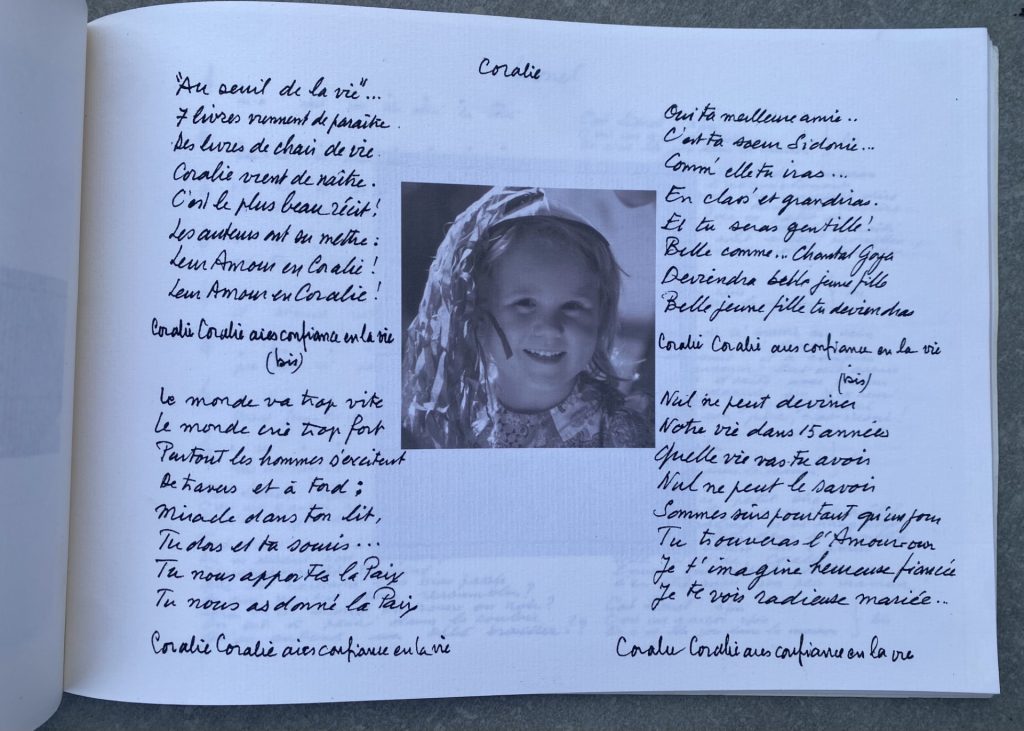 Coralie
"Au seuil de la vie"...
7 livres viennent de paraître.
Des livres de chair de vie.
Coralie vient de naître.
C'est le plus beau récit !
Les auteurs ont su mettre :
Leur Amour en Coralie !
Leur Amour en Coralie !
Coralie Coralie aies confiance en la vie
(bis)
Le monde va trop vite
Le monde crie trop fort
Partout les hommes s'excitent
De travers et à tord ;
Miracle dans ton lit,
Tu dors et tu souris...
Tu nous apportes la Paix
Tu nous as donné la Paix
Coralie Coralie aies confiance en la vie
Oui ta meilleure amie..
C'est ta soeur Sidonie...
Comm' elle tu iras...
En clas' et grandiras.
Et tu seras gentille !
Belle comme... Chantal Goya
Deviendra belle jeune fille
Belle jeune fille tu deviendras
Coralie Coralie aies confiance en la vie
(bis)
Nul ne peut deviner
Notre vie dans 15 années
Quelle vie vas-tu avoir
Nul ne peut le savoir
Sommes sûrs pourtant qu'un jour
Tu trouveras l'Amour
Je t'imagine heureuse fiancée
Je te vois radieuse mariée...
Coralie Coralie aies confiance en la vie